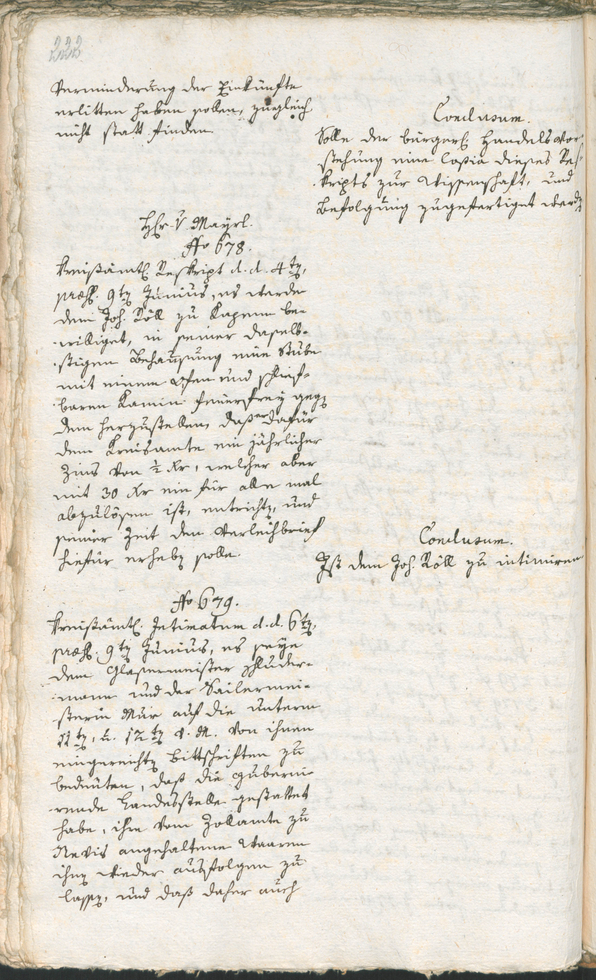 222
Verminderung der Einkünfte
erlitten haben sollen, zugleich
nicht statt finden
Conclusum.
Solle der bürgerl. Handels Vor-
stehung eine Copia dieses Re-
skripts zur Wissenschaft, und
Befolgung zugefertiget werden
H: v Mayrl.
No 678.
Kreisämtl. Reskript d. d. 4ten,
præs. 9ten Junius, es werde
dem Joh. Röll zu be-
williget, in seiner daselb-
stigen Behausung eine Stube
mit einem Ofen und schlief-
baren Kamin feuerfrey gegen
dem herzustellen, daß er dafür
dem Kreisamte ein jährlicher
Zins von ½ Kr, welcher aber
mit 30 Kr ein für alle mal
abzulösen ist, entrichten, und
seiner Zeit den Verleihbrief
hiefür erheben solle.
Conclusum.
Ist dem Joh. Röll zu intimiren
No 679.
Kreisämtl. Intimatum d. d. 6ten,
præs. 9ten Junius, es seye
dem Glasermeister
und der Sailermei-
sterin Mur auf die unterm
11ten, u. 12ten v. M. von ihnen
eingereichten Bittschriften zu
bedeuten, daß die guberni-
rende Landesstelle gestattet
habe, ihre vom Zollamte zu
Nevis angehaltene Waaren
ihnen wieder ausfolgen zu
lassen, und daß daher auch